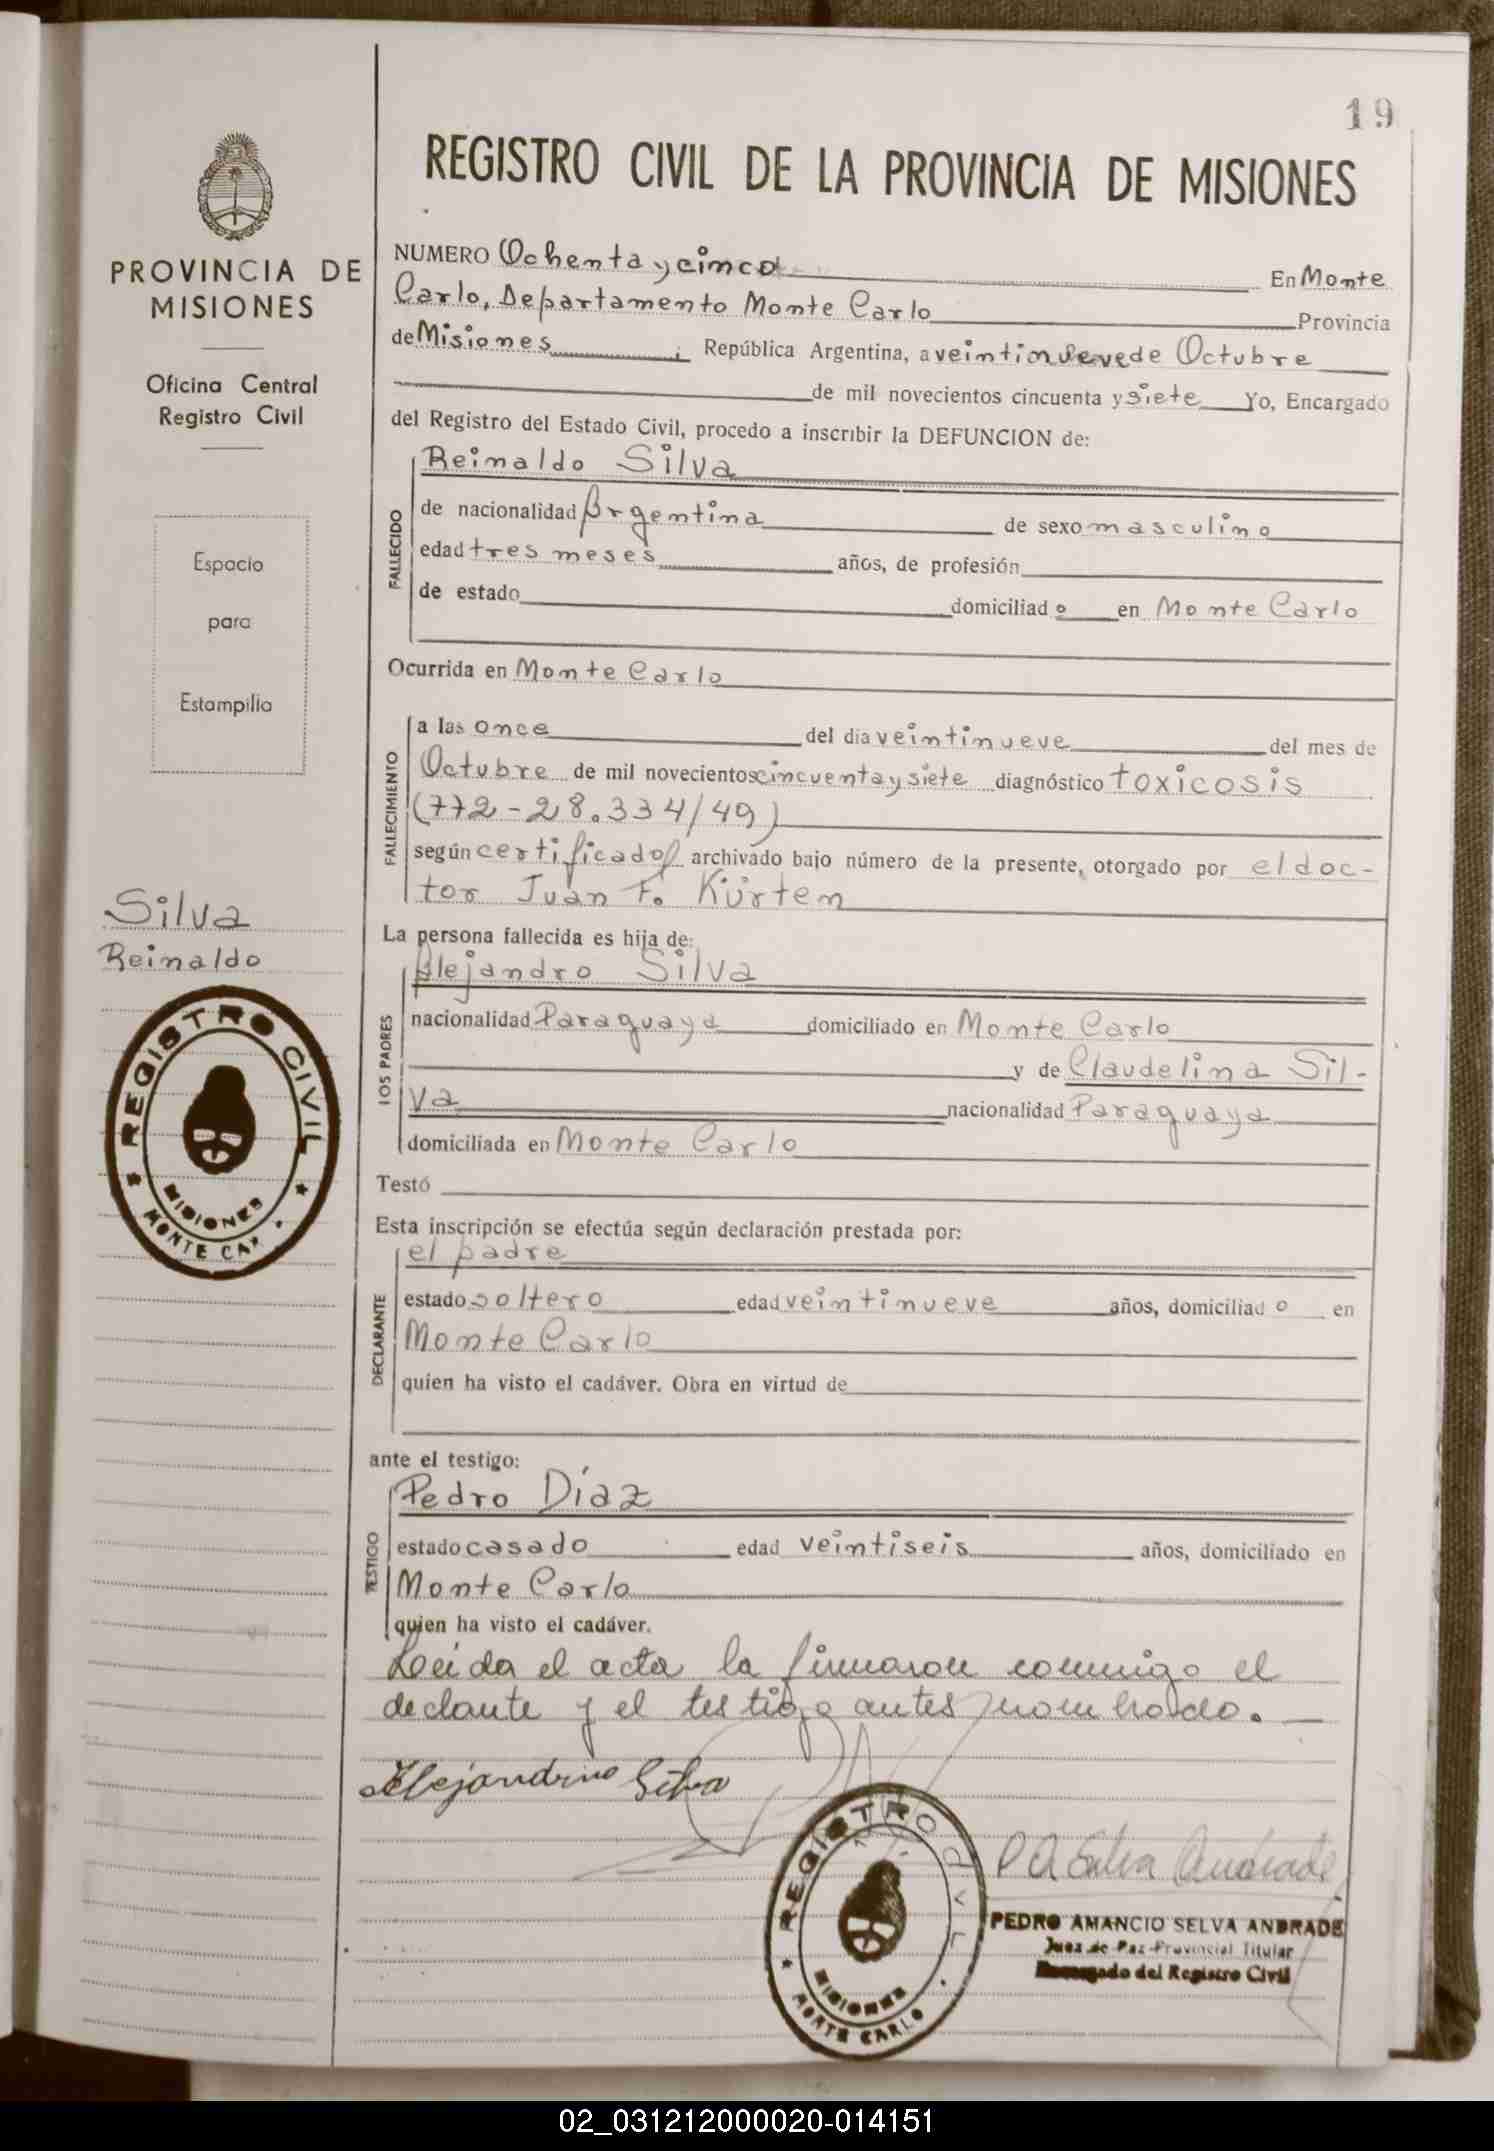 19
REGISTRO CIVIL DE LA PROVINCIA DE MISIONES
PROVINCIA DE
MISIONES
Oficina Central
Registro Civil
Espacio
para
Estampilla
Silva
Reinaldo
REGISTRO CIVIL
MISIONES
MONTE CAR
NUMERO Ochenta y cinco En Monte
Carlo, Departamento Monte Carlo Provincia
de Misiones República Argentina, a veintinueve de Octubre
de mil novecientos cincuenta y siete Yo, Encargado
del Registro del Estado Civil, procedo a inscribir la DEFUNCION de:
FALLECIDO
Reinaldo Silva
de nacionalidad Argentina de sexo masculino
edad tres meses años, de profesión
de estado domiciliado en Monte Carlo
Ocurrida en Monte Carlo
FALLECIMIENTO
a las once del dia veintinueve del mes de
Octubre de mil novecientos cincuenta y siete diagnóstico toxicosis
(772-28.334/49)
según certificado archivado bajo número de la presente, otorgado por el doc-
tor Juan F. Kürten
La persona fallecida es hija de:
LOS PADRES
Alejandro Silva
nacionalidad Paraguaya domiciliado en Monte Carlo
y de Claudelina Sil-
va nacionalidad Paraguaya
domiciliada en Monte Carlo
Testó
Esta inscripción se efectúa según declaración prestada por:
DECLARANTE
el padre
estado soltero edad veintinueve años, domiciliado en
Monte Carlo
quien ha visto el cadáver. Obra en virtud de
ante el testigo:
TESTIGO
Pedro Díaz
estado casado edad veintiseis años, domiciliado en
Monte Carlo
quien ha visto el cadáver.
Leida el acta la firmaron conmigo el
declante y el testigo antes nombrado.
Alejandrino Silva
P A Selva Andrade
REGISTRO CIVIL
MISIONES
MONTE CARLO
PEDRO AMANCIO SELVA ANDRADE
Juez de Paz Provincial Titular
Encargado del Registro Civil
02_031212000020-014151